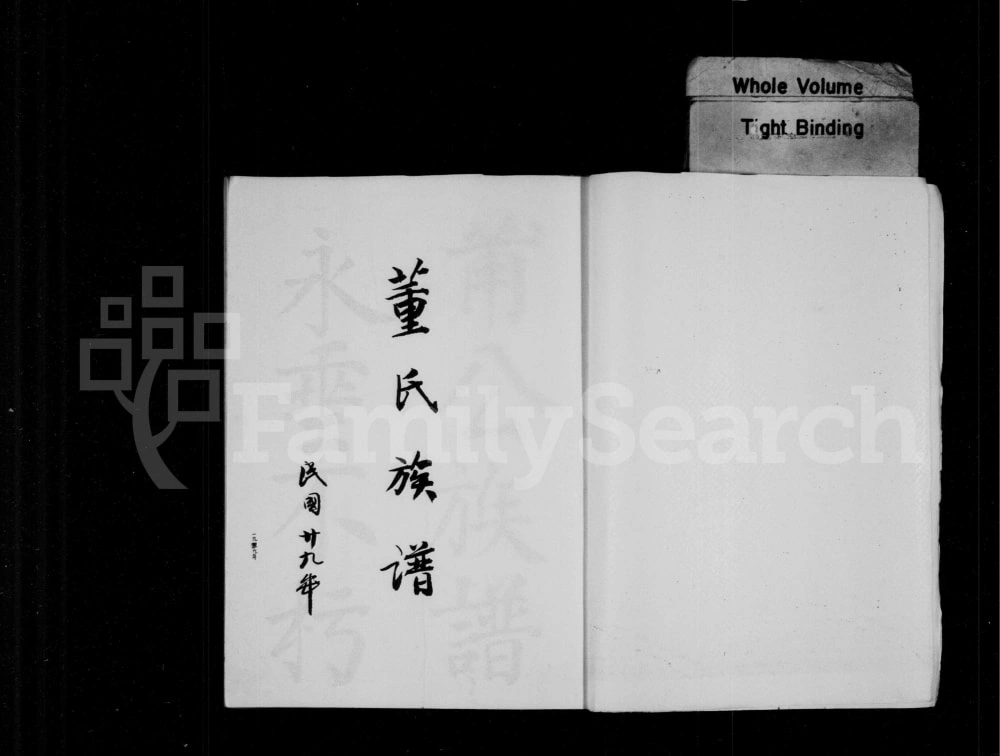 Whole Volume
Tight Binding
董氏族譜
民國廿九年
永垂不朽
公族譜
FamilySearch